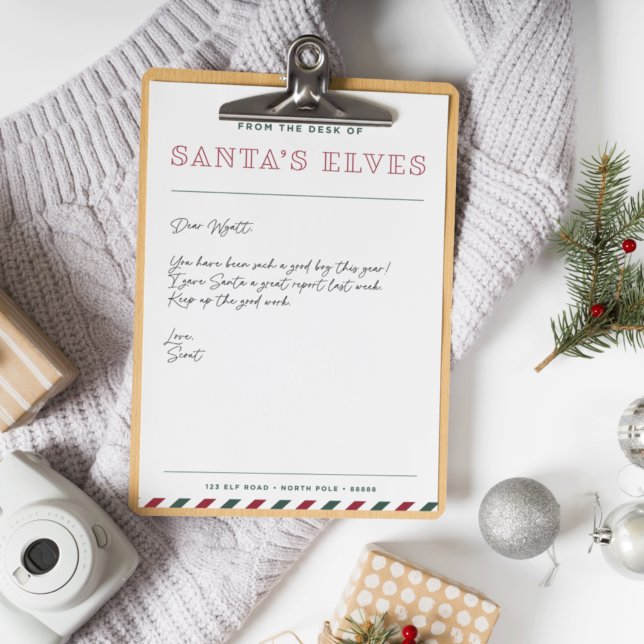 FROM THE DESK OF
SANTA'S ELVES
Dear Wyatt,
You have been such a good boy this year!
I gave Santa a great report last week.
Keep up the good work.
Love,
Scout
123 ELF ROAD • NORTH POLE • 88888